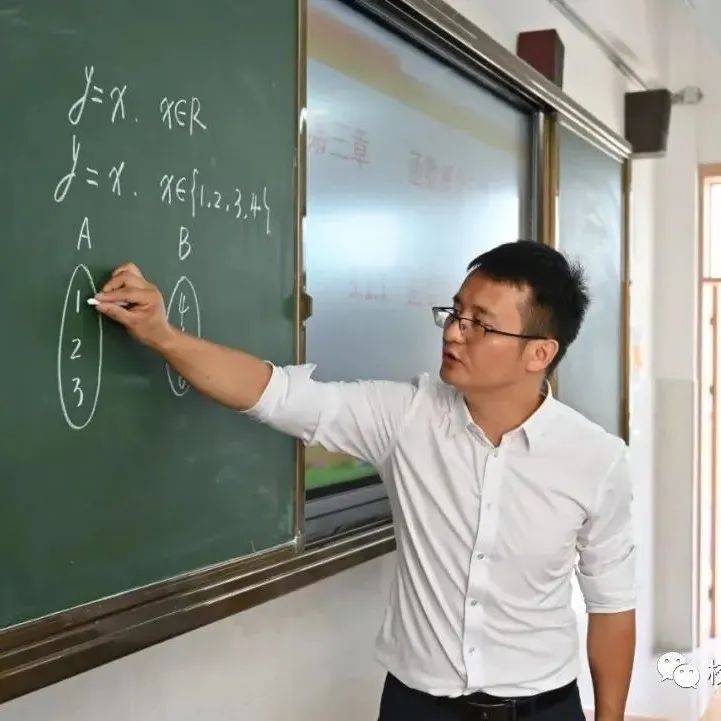 y=x. x∈R
y=x. x∈{1.2.3.4}
A B
1 4
2
3
第三章 函数